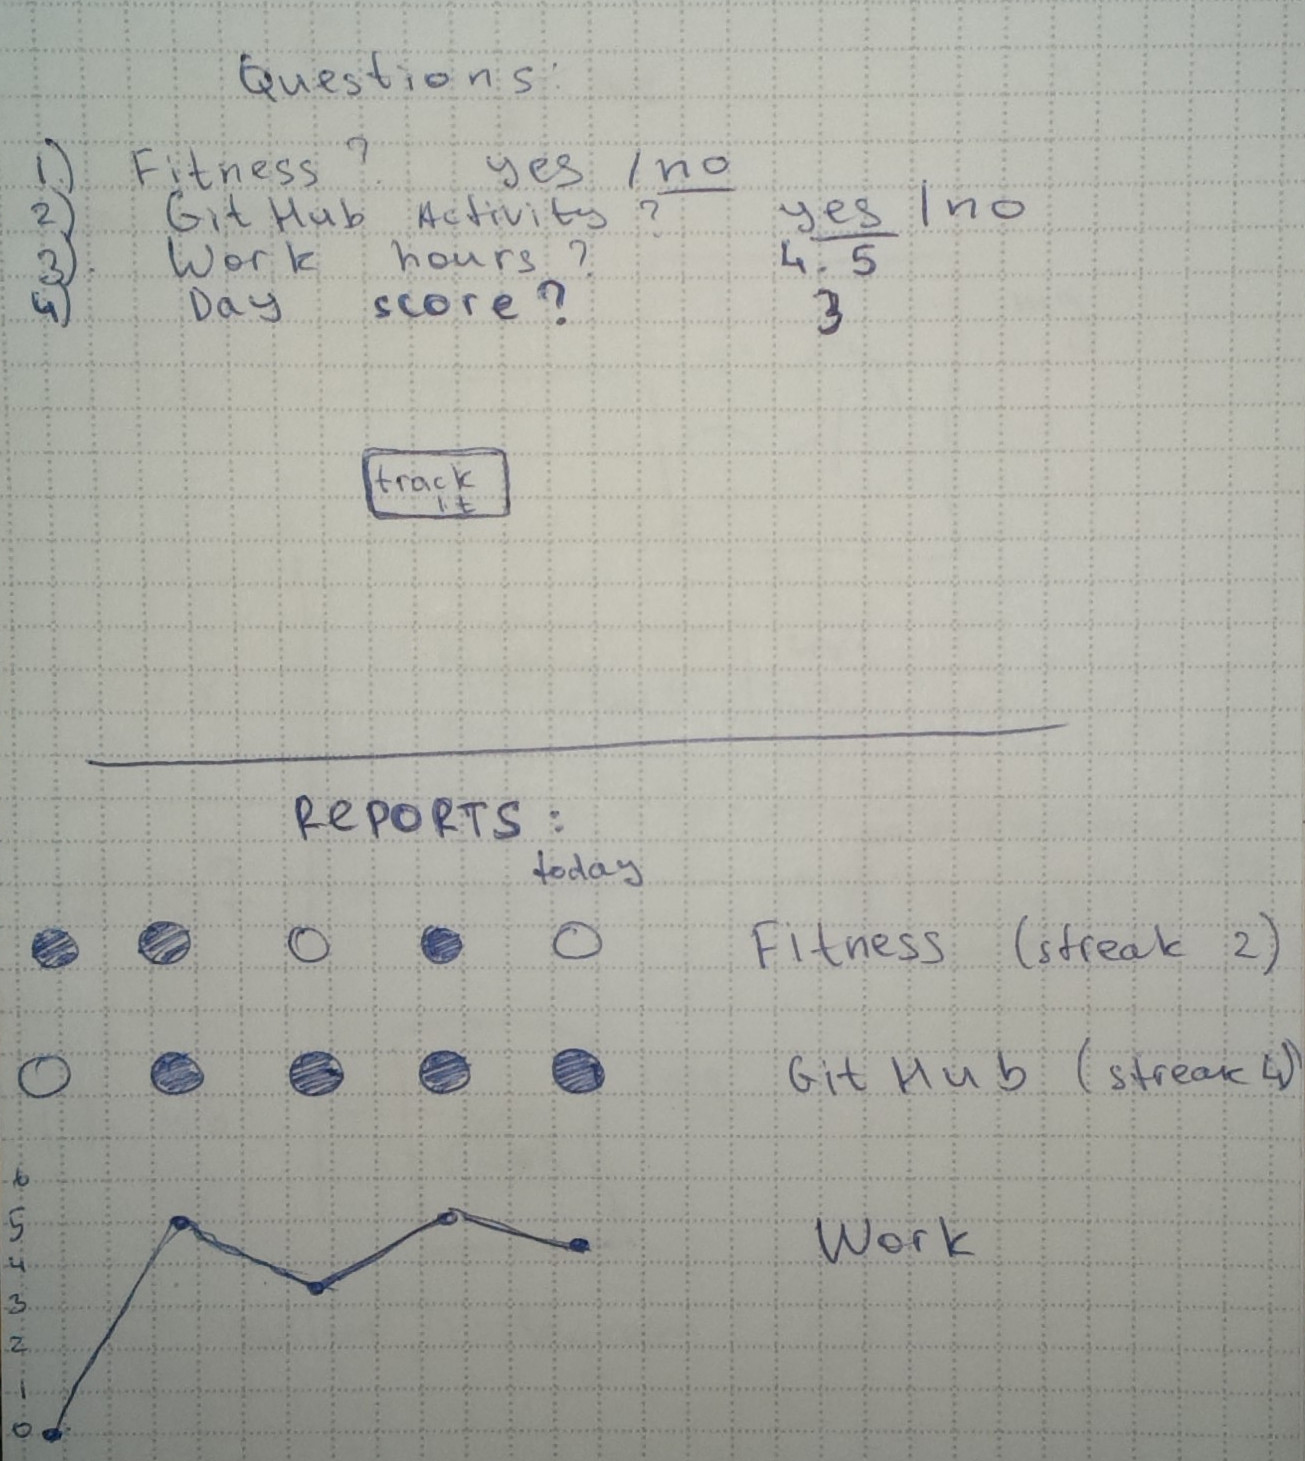 Questions:
1) Fitness? yes / no
2) GitHub Activity? yes / no
3) Work hours? 4.5
4) Day score? 3
track
it
REPORTS:
today
Fitness (streak 2)
GitHub (streak 4)
6
5
Work
4
3
2
1
0